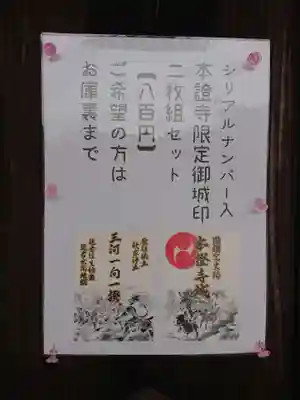 シリアルナンバー入
本證寺限定御城印
二枚組セット
【八百円】
ご希望の方は
お庫裏まで
本證寺城
三河一向一揆